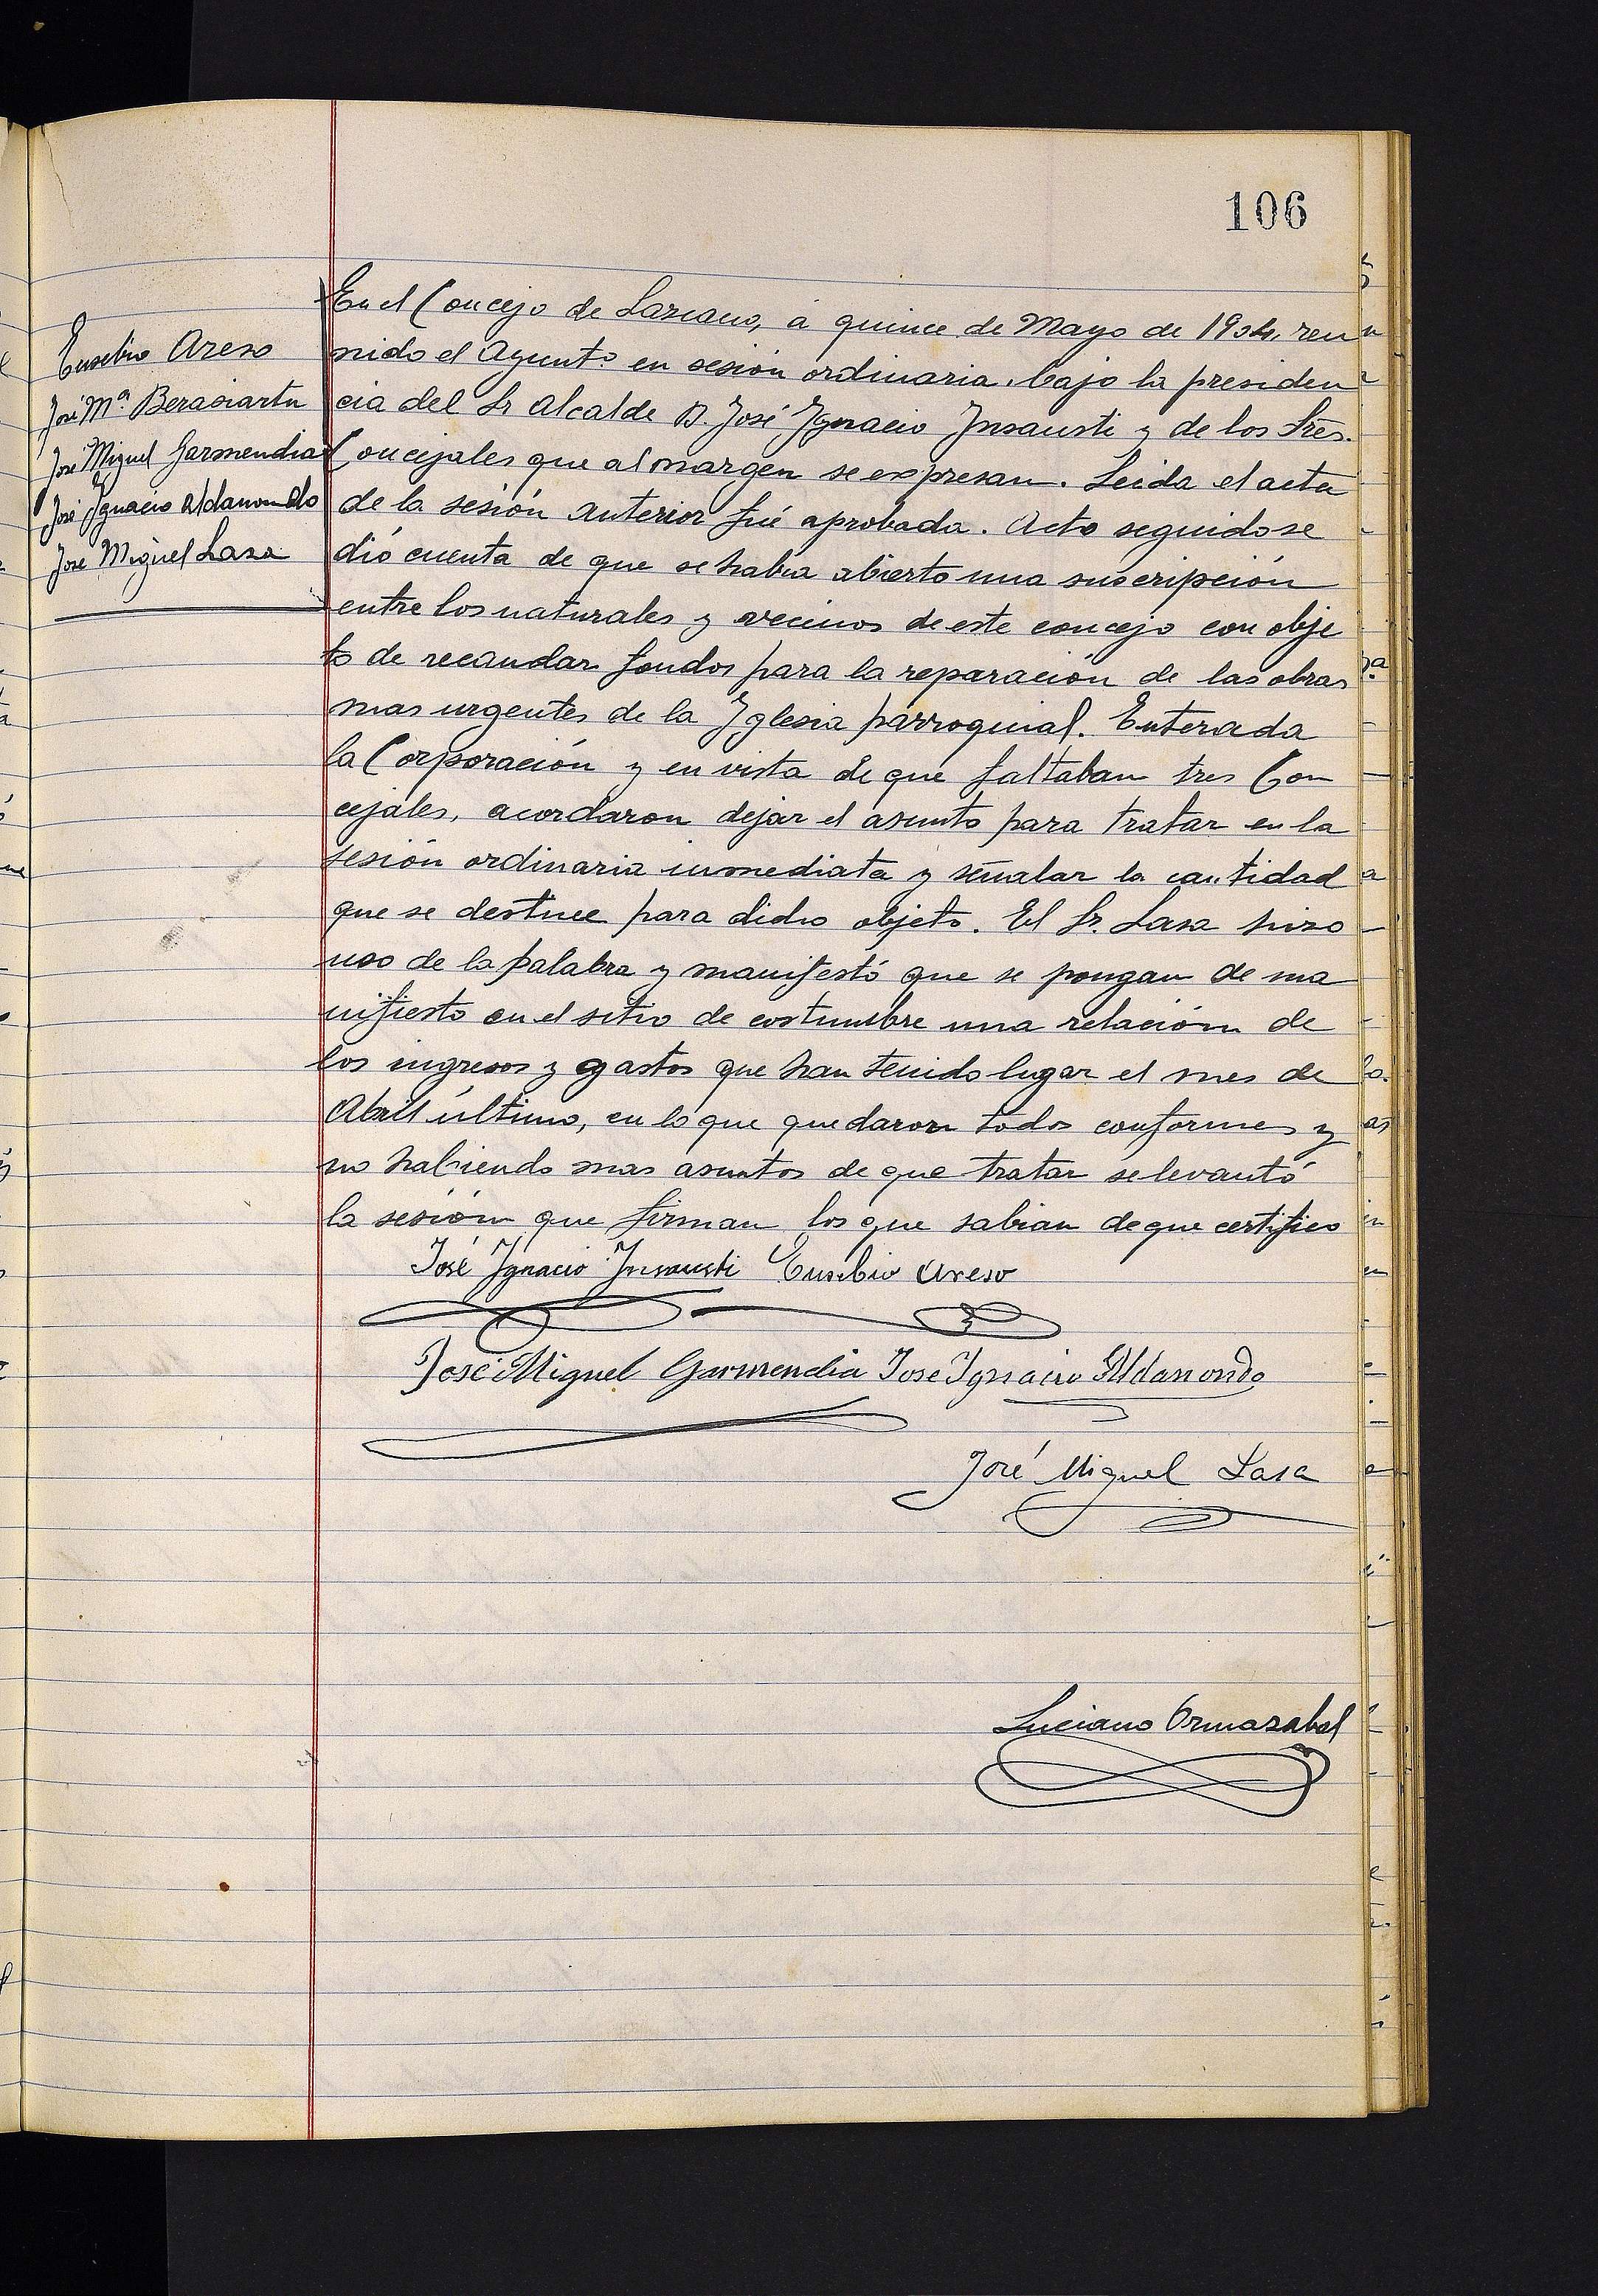 106
Eusebio Areso
José Mª. Berasiartu
José Miguel Garmendia
José Ygnacio Aldanondo
José Miguel Lasa
En el Concejo de Lazcano, á quince de Mayo de 1904, reu
nido el Ayuntº. en sesión ordinaria, bajo la presiden
cia del Sr Alcalde D. José Ygnacio Ynsausti y de los Sres.
Concejales que al margen se expresan. Leida el acta
de la sesión anterior fué aprobada. Acto seguido se
dió cuenta de que se habia abierto una suscripción
entre los naturales y vecinos de este concejo con obje
to de recaudar fondos para la reparación de las obras
mas urgentes de la Yglesia parroquial. Enterada
la Corporación y en vista de que faltaban tres Con
cejales, acordaron dejar el asunto para tratar en la
sesión ordinaria inmediata y señalar la cantidad
que se destine para dicho objeto. El Sr. Lasa hizo
uso de la palabra y manifestó que se pongan de ma
nifiesto en el sitio de costumbre una relación de
los ingresos y gastos que han tenido lugar el mes de
Abril último, en lo que quedaron todos conformes y
no habiendo mas asuntos de que tratar se levantó
la sesión que firman los que sabian de que certifico
José Ygnacio Ynsausti Eusebio Areso
José Miguel Garmendia José Ygnacio Aldanondo
José Miguel Lasa
Luciano Ormazabal